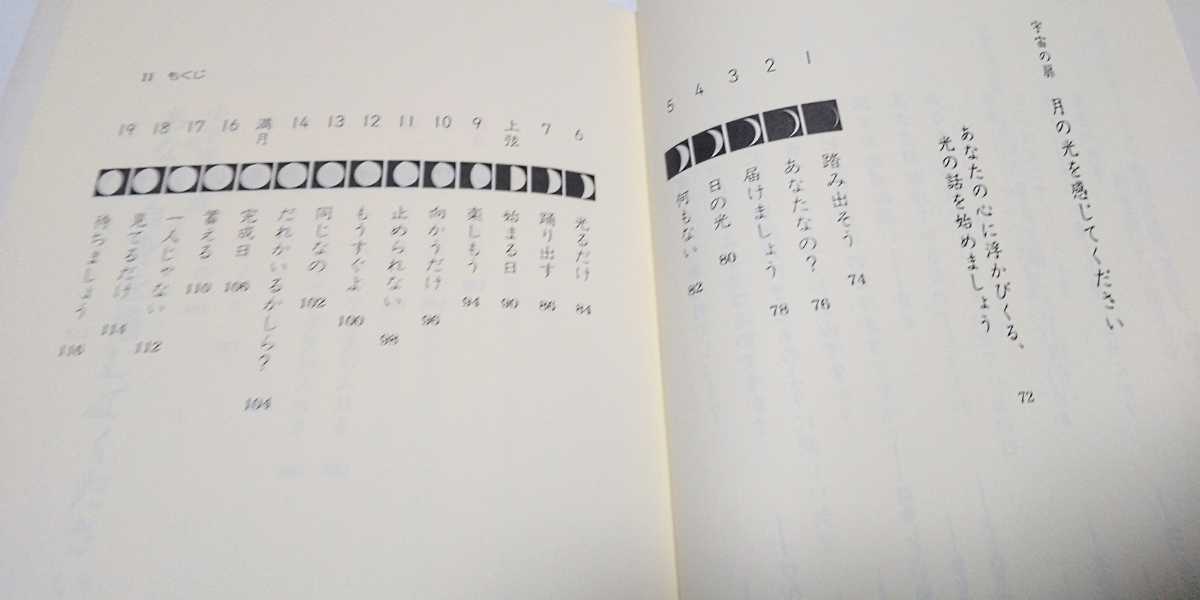 宇宙の扉 月の光を感じてください
あなたの心に浮かびくる、
光の話を始めましょう 72
1 踏み出そう 74
2 あなたなの? 76
3 届けましょう 78
4 日の光 80
5 何もない 82
11 もくじ
6 光るだけ 84
7 踊り出す 86
上弦 始まる日 90
9 楽しもう 94
10 向かうだけ 96
11 止められない 98
12 もうすぐよ 100
13 同じなの 102
14 だれかいるかしら? 104
満月 完成日 106
16 蓄える 110
17 一人じゃない 112
18 見てるだけ 114
19 待ちましょう 116